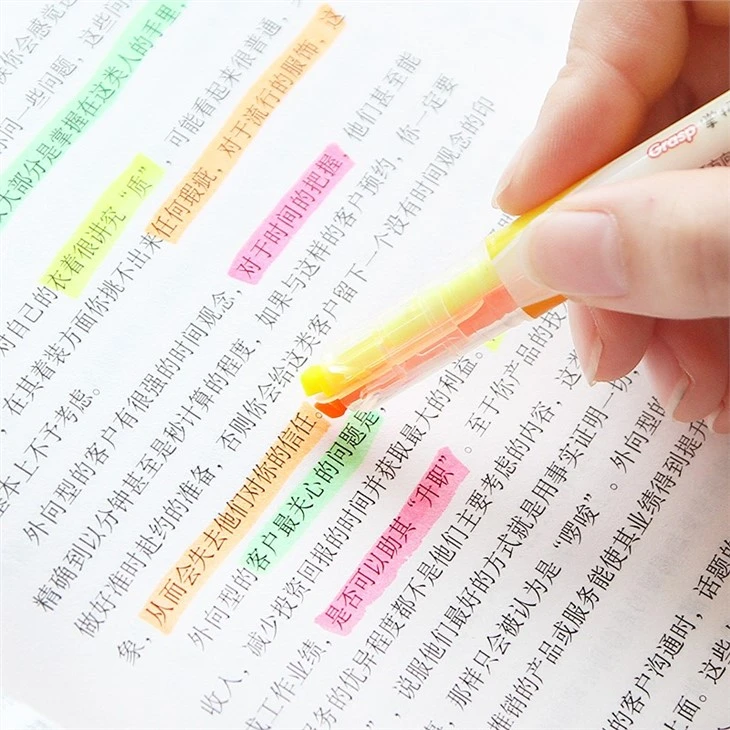 你会感觉这
问一些问题，这些问
大部分是掌握在这类人的手里，
对自己的衣着很讲究“质”，可能看起来很普通，
，在其着装方面你挑不出来任何瑕疵，对于流行的服饰，这
基本上不予考虑。
外向型的客户有很强的时间观念，对于时间的把握，他们甚至能
精确到以分钟甚至是秒计算的程度，如果与这样的客户预约，你一定要
做好准时赴约的准备，否则你会给这类客户留下一个没有时间观念的印
象，从而会失去他们对你的信任。
外向型的客户最关心的问题是
收入，减少投资回报的时间并获取最大的利益。
工作业绩，是否可以助其“升职”。至于你产品的技
服务的优异程度都不是他们主要考虑的内容，这
”，说服他们最好的方式就是用事实证明一切，
，那样只会被认为是“啰唆”。外向型的
推销的产品或服务能使其业绩得到提升
的客户沟通时，话题的
上面。这些，
Grasp